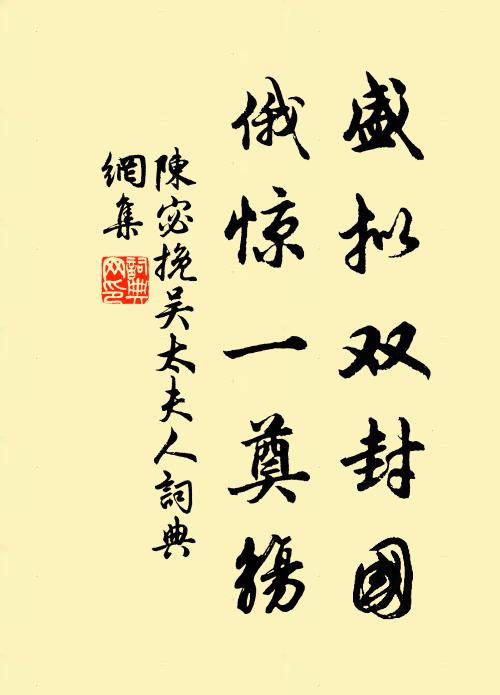 盛拟双封國
俄惊一奠觞
陳宓挽吴太夫人詞典
網集
詞典網印